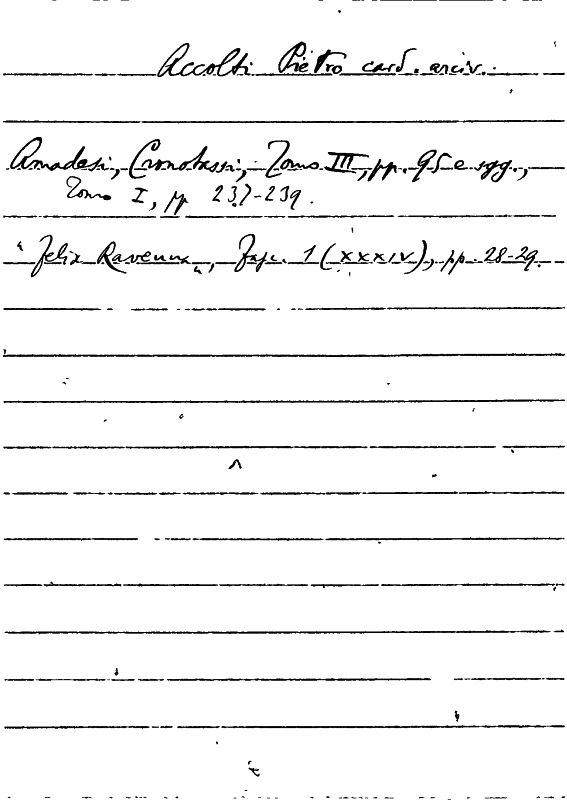 Accolti Pietro card. arciv.
Amadesi, Cronotassi, Tomo III, pp. 95 e sgg.,
Tomo I, pp 237-239.
"Felix Ravenna", Fasc. 1 (XXXIV), pp. 28-29.